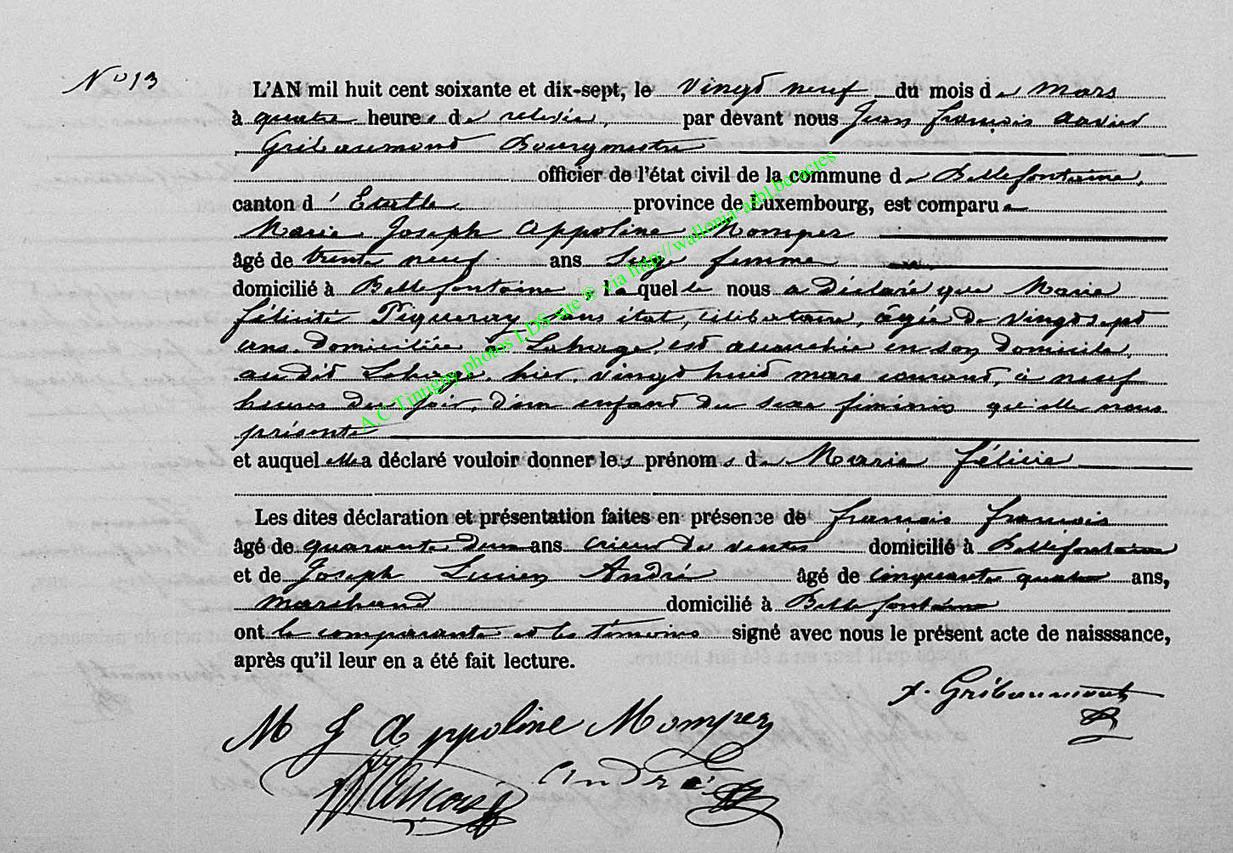 N° 13
L'AN mil huit cent soixante et dix-sept, le vingt neuf du mois de mars
à quatre heures de relevée, par devant nous Jean françois Xavier
Gribaumont Bourgmestre
officier de l'état civil de la commune de Bellefontaine,
canton d'Etalle province de Luxembourg, est comparue
Marie Joseph Appoline Momper
âgé de trente neuf ans Sage femme
domicilié à Bellefontaine laquelle nous a déclaré que Marie
félicité Piqueray sans état, célibataire, âgée de vingt sept
ans domiciliée à Lahage, est accouchée en son domicile,
audit Lahage, hier, vingt huit mars courant, à neuf
heures du soir, d'un enfant du sexe féminin qu'elle nous
présente
et auquel elle a déclaré vouloir donner les prénoms de Marie félicie
Les dites déclaration et présentation faites en présence de françois françois
âgé de quarante deux ans crieur de ventes domicilié à Bellefontaine
et de Joseph Lucien André âgé de cinquante quatre ans,
marchand domicilié à Bellefontaine
ont la comparante et les témoins signé avec nous le présent acte de naisssance,
après qu'il leur en a été fait lecture.
x. Gribaumont
M J Appoline Momper
françois André
A.C Tintigny photos LDS site © via http://wallonia-asbl.be/actes